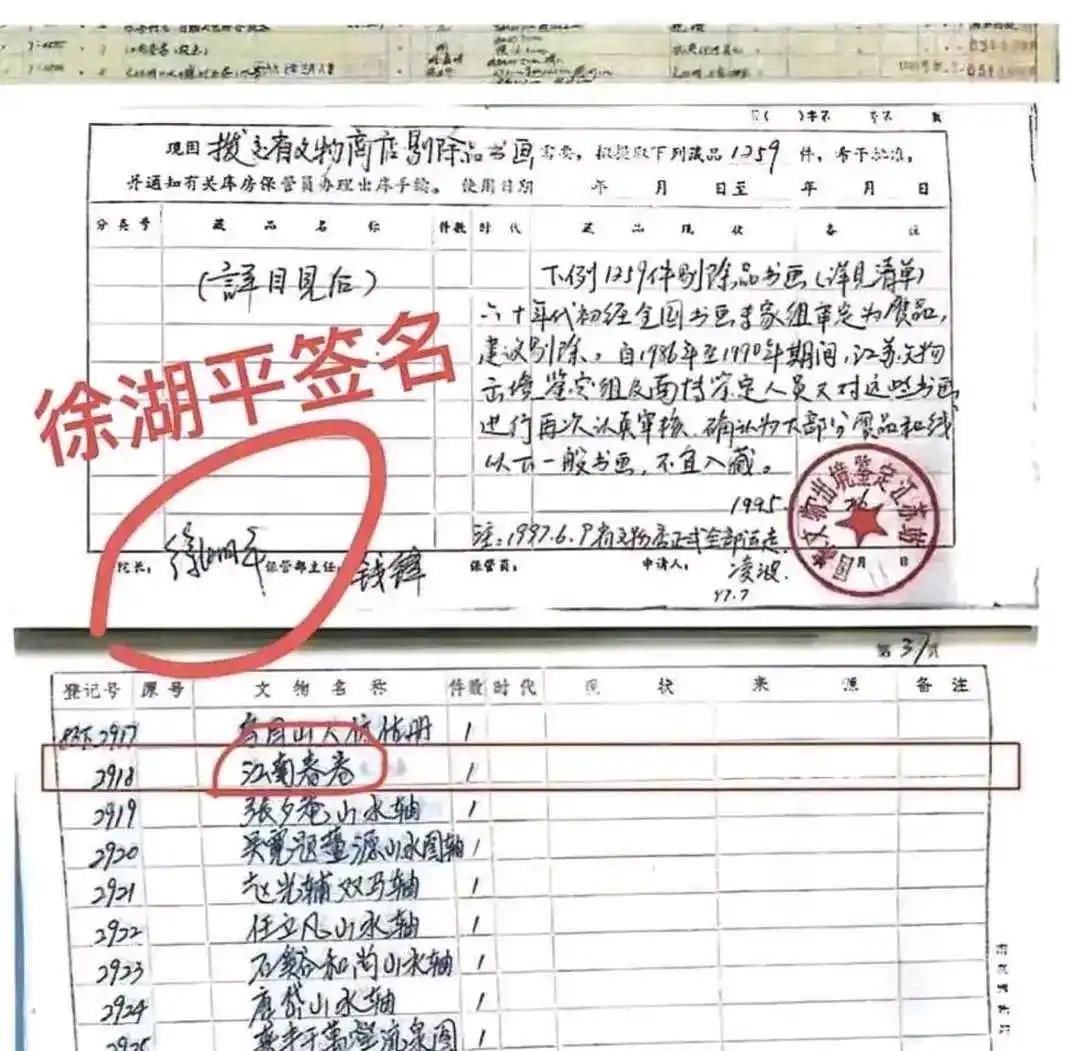 现因 拨交省文物商店剔除品书画 需要，拟提取下列藏品 1259 件，希予批准，
并通知有关库房保管员办理出库手续。 使用日期 年 月 日至 年 月 日
分类号 藏品名称 件数 时代 藏品现状 备注
(詳目見后)
下例1259件剔除品书画(详见清单)
六十年代初经全国书画专家组审定为赝品,
建议剔除。自1986年至1990年期间,江苏文物
出境鉴定组及南博鉴定人员又对这些书画
进行再次认真审核、确认为大部分赝品和线
以下一般书画,不宜入藏。
徐湖平签名
1995.
注:1997.6.9省文物店正式全部运走.
院长： 徐湖平 保管部主任： 钱锋 保管员： 申请人： 凌波. 月 日
97.7
国家文物出境鉴定江苏站
第 37 页
登记号 原号 文物名称 件数 时代 现状 来源 备注
2917 1
2918 江南春卷 1
2919 張夕庵山水轴 1
2920 吴寬題董源山水圖轴 1
2921 赵光辅双马轴 1
2922 任立凡山水轴 1
2923 石谿和尚山水轴 1
2924 唐岱山水轴 1
2925